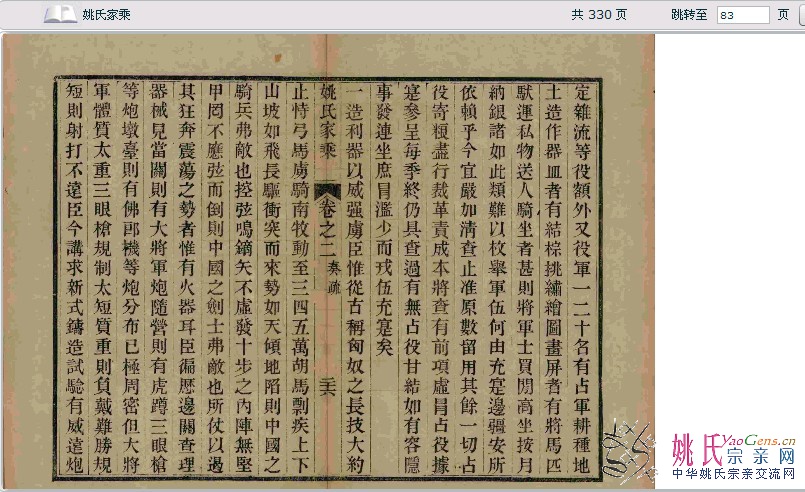 姚氏家乘
共 330 页
跳转至 83 页
定雜流等役額外又役軍一二十名有占軍耕種地
土造作器皿者有結棕挑繡繪圖畫屏者有將馬匹
馱運私物送人騎坐者甚則將軍士買閒高坐按月
納銀諸如此類難以枚舉軍伍何由充寔邊疆安所
依賴乎今宜嚴加清查止准原數留用其餘一切占
役寄糧盡行裁革責成本將查有前項虛冒占役據
寔參呈每季終仍具查過有無占役甘結如有容隱
事發連坐庶冒濫少而戎伍充寔矣
一造利器以威强虜臣惟從古稱匈奴之長技大約
姚氏家乘 卷之二 奏疏 二六
止恃弓馬虜騎南牧動至三四五萬胡馬剽疾上下
山坡如飛長驅衝突而來勢如天傾地陷則中國之
騎兵弗敵也控弦鳴鏑矢不虛發十步之內陣無堅
甲罔不應弦而倒則中國之劍士弗敵也所仗以遏
其狂奔震蕩之勢者惟有火器耳臣徧歷邊關查理
器械見當關則有大將軍炮隨營則有虎蹲三眼槍
等炮墩臺則有佛郎機等炮分布已極周密但大將
軍體質太重三眼槍規制太短質重則負戴難勝規
短則射打不遠臣今講求新式鑄造試驗有威遠炮
姚氏 YaoGens.cn
宗亲网
中华姚氏宗亲交流网